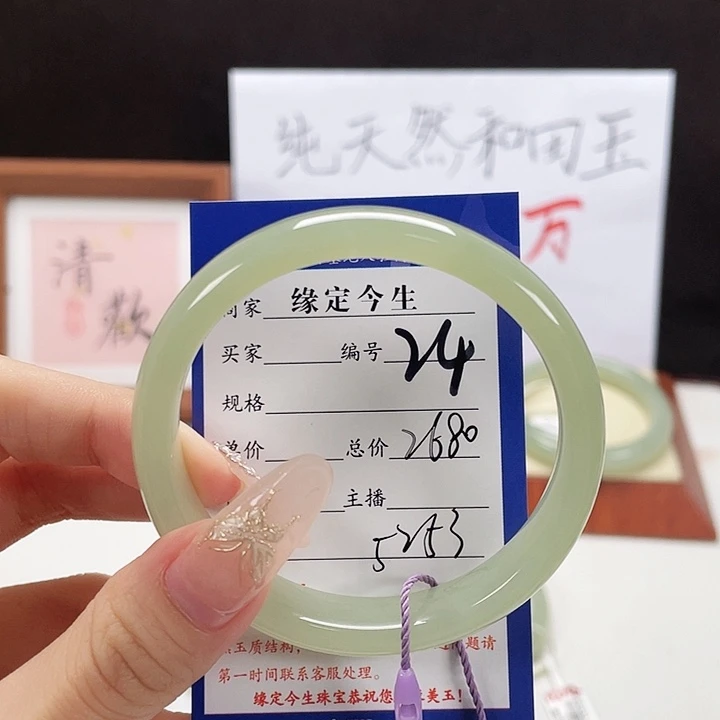 纯天然和田玉
万
清
欢
商家 缘定今生
买家 编号 24
规格
单价 总价 2680
主播
5253
玉质结构,
题请
第一时间联系客服处理。
缘定今生珠宝恭祝您 美玉!